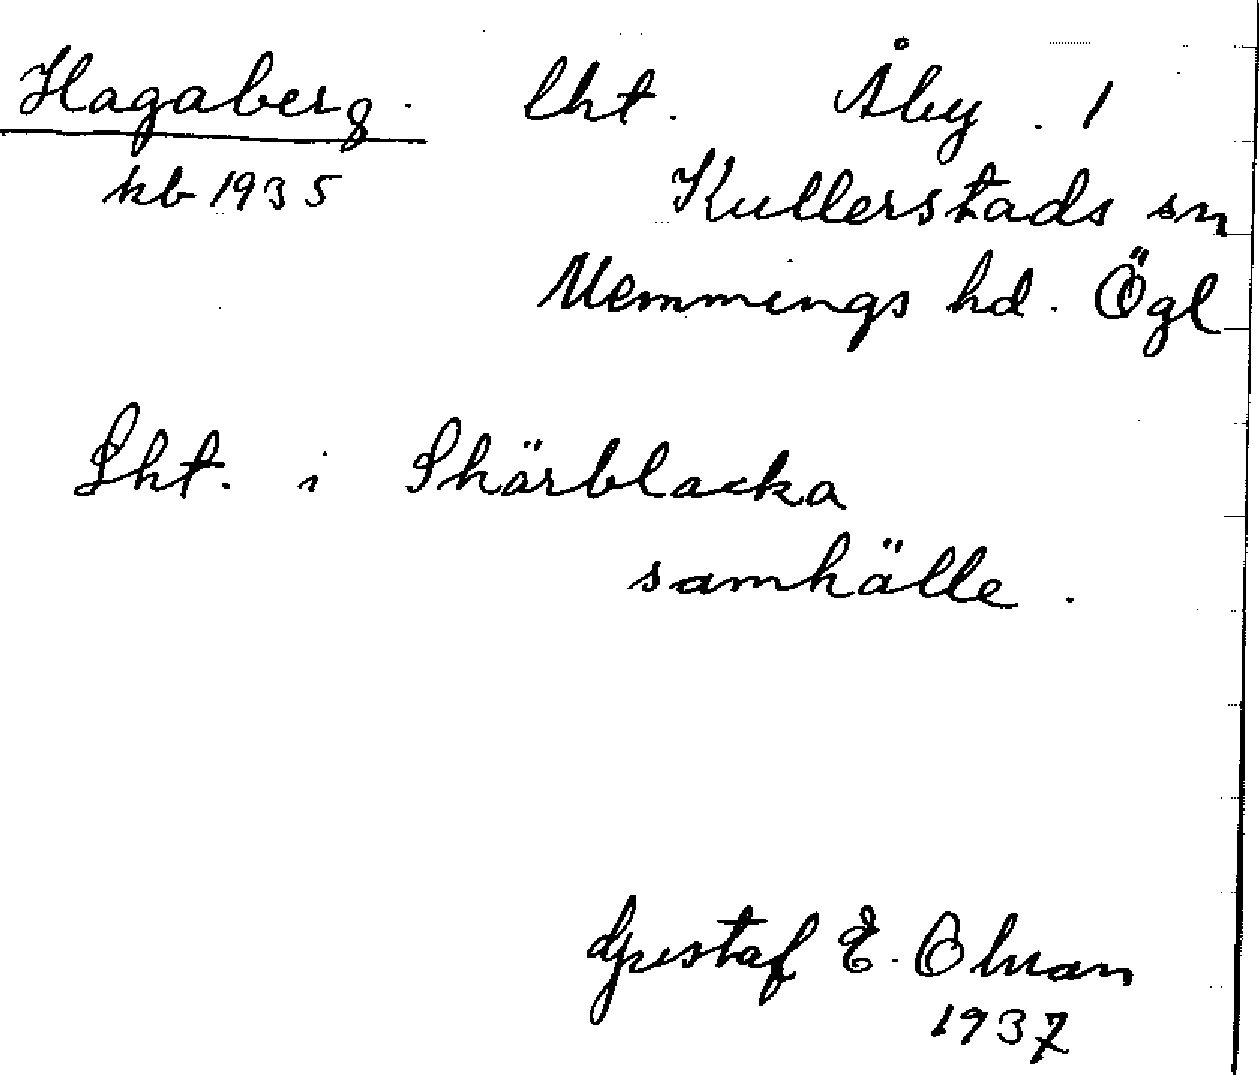 Hagaberg. lht. Åby. 1
kb 1935 Kullerstads sn
Memmings hd. Ögl
Lht. i Skärblacka
samhälle.
Gustaf E. Olman
1937